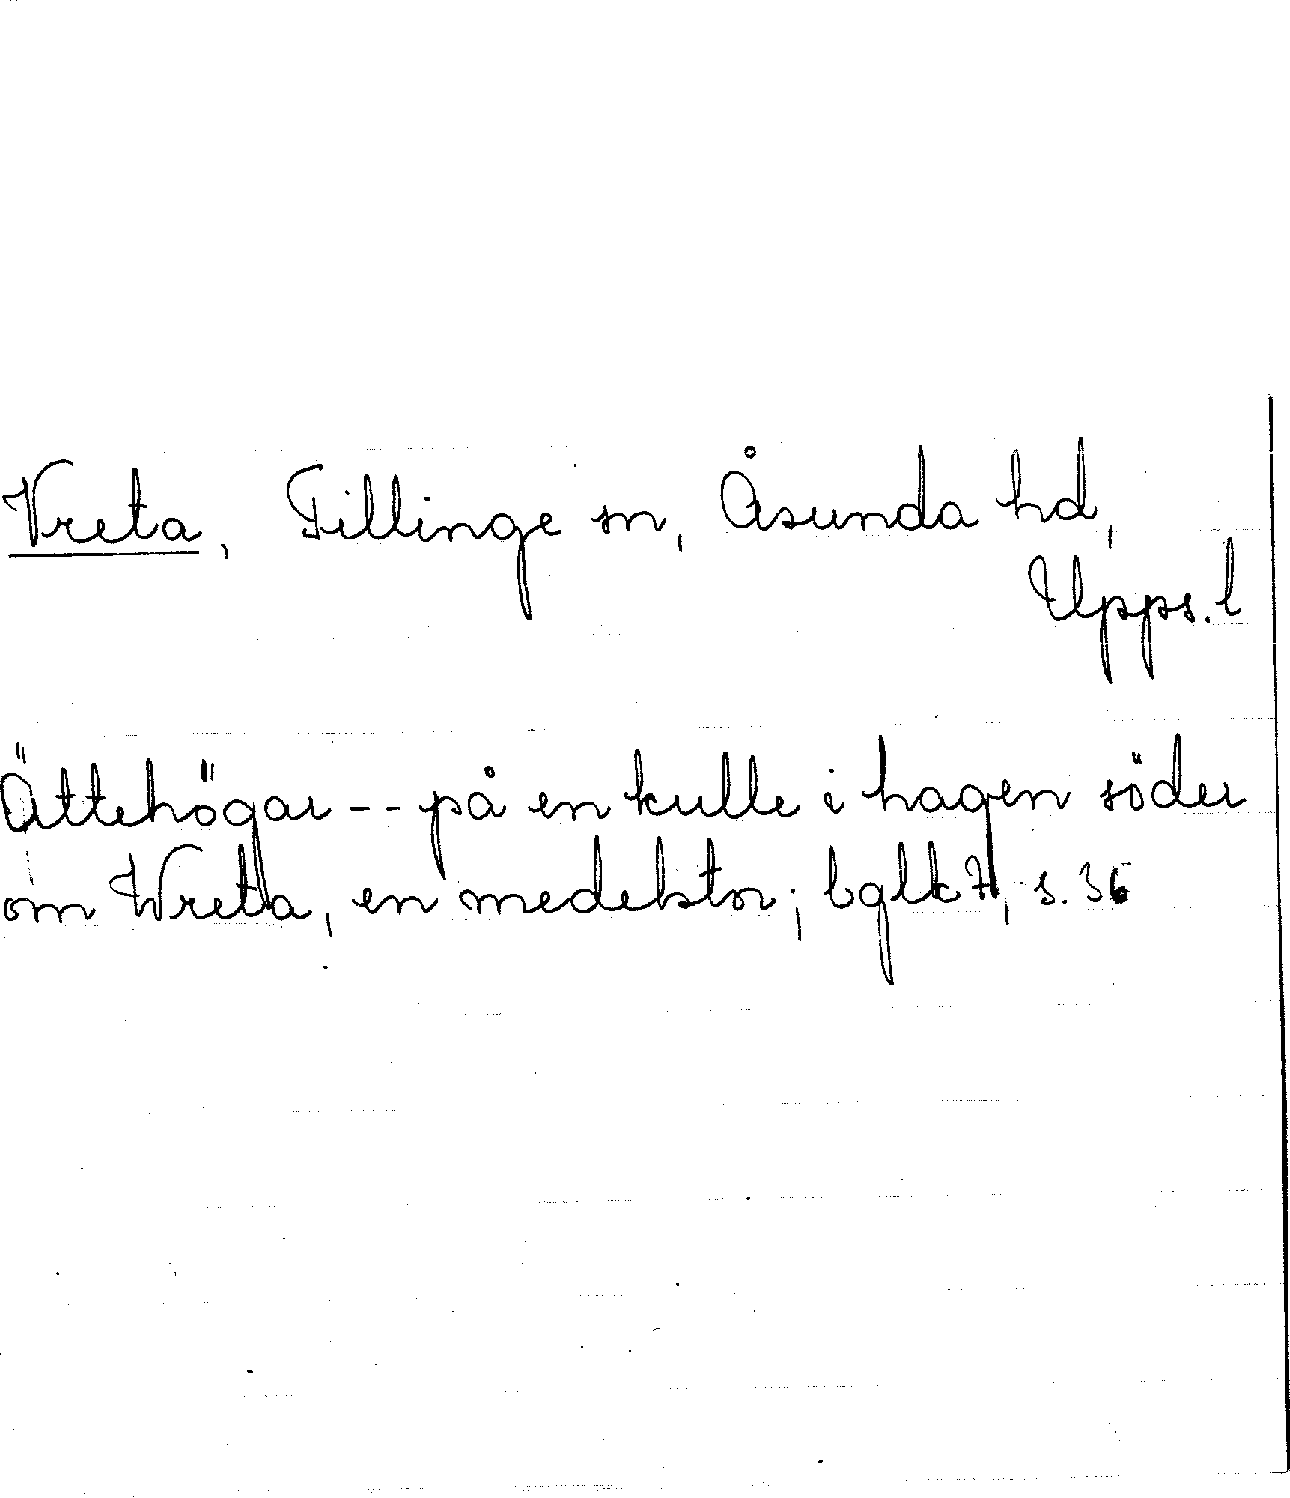 Vreta, Tillinge sn, Åsunda hd,
Upps. l
Ättehögar -- på en kulle i hagen söder
om Wreta, en medelstor; bglk 71, s. 36